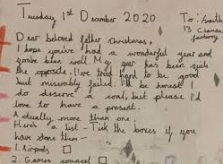 Tuesday 1st December 2020
To: Santa
13
Dear beloved father christmas,
I hope you've had a wonderful year and
you've been well. My year has been quite
the opposite. I've tried hard to be good
but miserably failed. I'll be honest I
do deserve a coal, but please I'd
love to have a present.
Actually more than one.
Here's a list - Tick the boxes if you
have done them -
1. Airpods
2. Games